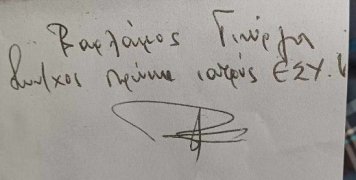 Βαρλάμος Γιώργος
Συν/χος πρώην ιατρός ΕΣΥ.